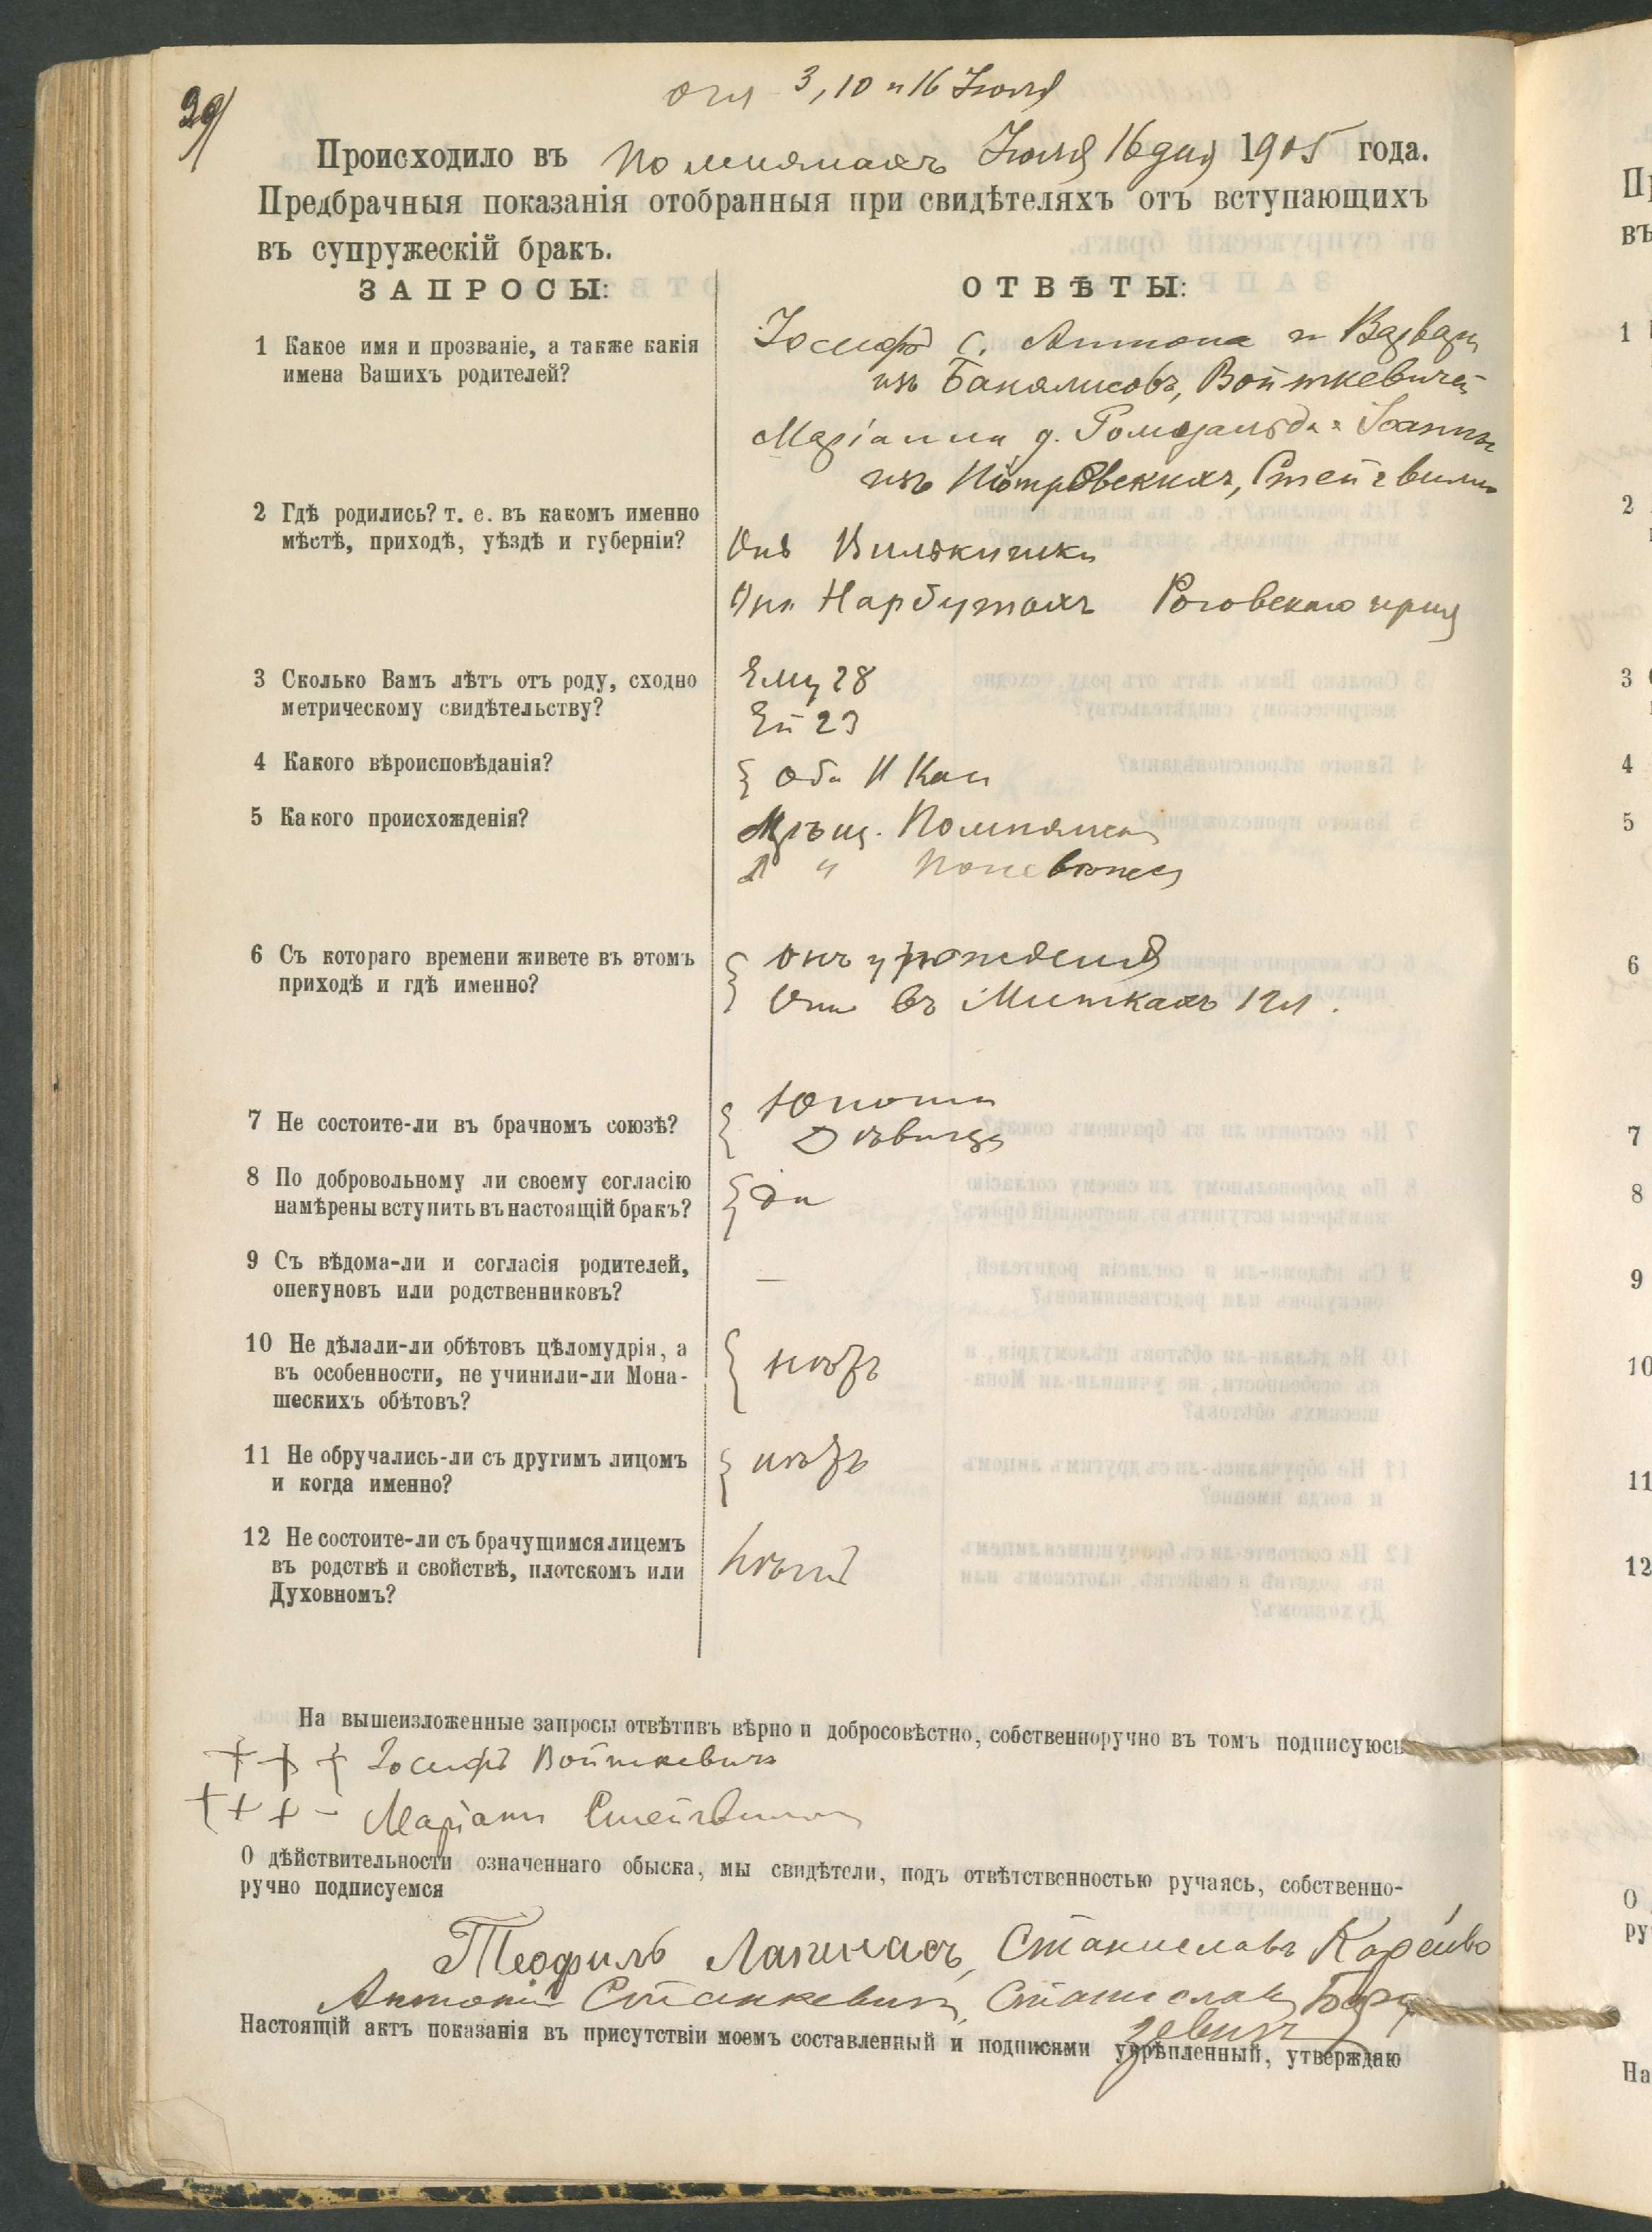 29
огл 3, 10 и 16 Іюля
Происходило въ Помпянахъ Іюля 16 дня 1905 года.
Предбрачныя показанія отобранныя при свидѣтеляхъ отъ вступающихъ
въ супружескій бракъ.
ЗАПРОСЫ:
ОТВѢТЫ:
1 Какое имя и прозваніе, а также какія
имена Вашихъ родителей?
Іосифъ с. Антона и Варвары
изъ Войткевичей
Маріанна д. Ромуальда и Іоанны
изъ Пѣтровскихъ, Стейгвилло
2 Гдѣ родились? т. е. въ какомъ именно
мѣстѣ, приходѣ, уѣздѣ и губерніи?
Онъ
Она Нарбутахъ Роговскаго прих
3 Сколько Вамъ лѣтъ отъ роду, сходно
метрическому свидѣтельству?
Ему 28
Ей 23
4 Какого вѣроисповѣданія?
Оба
5 Какого происхожденія?
Мѣщ.
"
6 Съ котораго времени живете въ этомъ
приходѣ и гдѣ именно?
Онъ урожденія
Она въ Миткахъ 12 л.
7 Не состоите-ли въ брачномъ союзѣ?
Юноша
Дѣвица
8 По добровольному ли своему согласію
намѣрены вступить въ настоящій бракъ?
да
9 Съ вѣдома-ли и согласія родителей,
опекуновъ или родственниковъ?
—
10 Не дѣлали-ли обѣтовъ цѣломудрія, а
въ особенности, не учинили-ли Мона-
шескихъ обѣтовъ?
нѣтъ
11 Не обручались-ли съ другимъ лицомъ
и когда именно?
нѣтъ
12 Не состоите-ли съ брачущимся лицемъ
въ родствѣ и свойствѣ, плотскомъ или
Духовномъ?
нѣтъ
На вышеизложенные запросы отвѣтивъ вѣрно и добросовѣстно, собственноручно въ томъ подписуюсь
+ + + Іосифъ Войткевичъ
+ + + - Маріанна Стейгвилло
О дѣйствительности означеннаго обыска, мы свидѣтели, подъ отвѣтственностью ручаясь, собственно-
ручно подписуемся
Теофиль Лапинасъ, Станиславъ Карейво
Антоній Станкевичъ, Станиславъ
Настоящій актъ показанія въ присутствіи моемъ составленный и подписями укрѣпленный, утверждаю